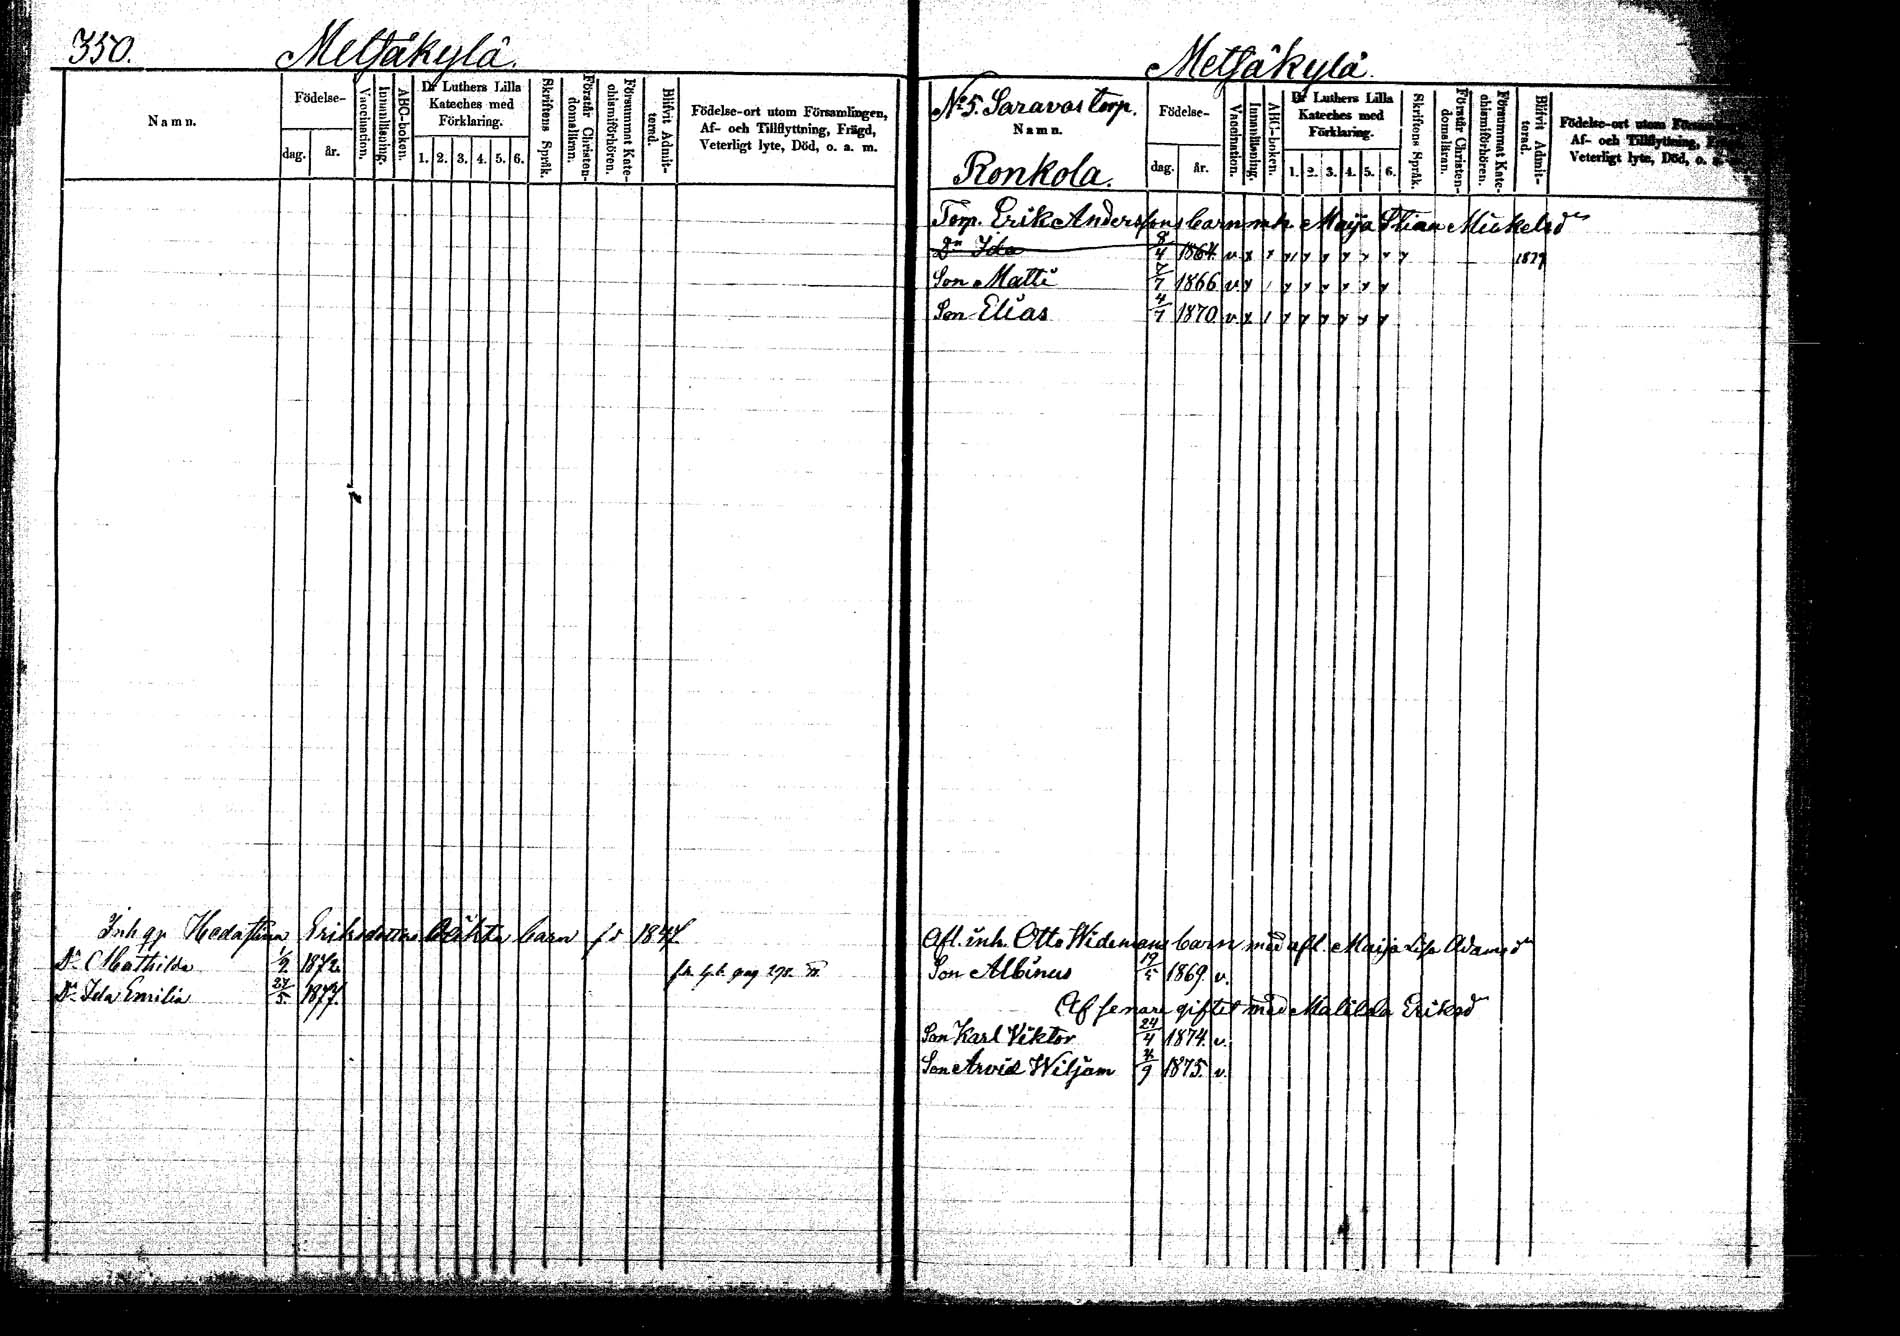 350.
Metsäkylä.
Namn.
Födelse-
dag.
år.
Vaccination.
Innanläsning.
ABC-boken.
Dr Luthers Lilla
Kateches med
Förklaring.
1. 2. 3. 4. 5. 6.
Skriftens Språk.
Förstår Christen-
domsläran.
Försummat Kate-
chismiförhören.
Blifvit Admit-
terad.
Födelse-ort utom Församlingen,
Af- och Tillflyttning, Frägd,
Veterligt lyte, Död, o. a. m.
Inh qp Hedastina Eriksdotters oäkta barn fd 1844
Dr Mathilda 1/2 1872
Dr Ida Emilia 27/5 1877.
Metsäkylä
No 5. Saravas torp.
Namn.
Ronkola.
Födelse-
dag.
år.
Vaccination.
Innanläsning.
ABC-boken.
Dr Luthers Lilla
Kateches med
Förklaring.
1. 2. 3. 4. 5. 6.
Skriftens Språk.
Förstår Christen-
domsläran.
Försummat Kate-
chismiförhören.
Blifvit Admit-
terad.
Födelse-ort utom
Af- och Tillflyttning,
Veterligt lyte, Död, o. a.
Torp. Erik Anderssons barn m h. Maija Stina Mickelsdr
Dr Ida 8/4 1864 v 1879
Son Matti 7/7 1866 v
Son Elias 4/7 1870 v
Afl. inh. Otto Widemans barn med afl. Maija Lisa Adamsdr
Son Albinus 19/5 1869. v.
Af senare giftet med Matilda Eriksdr
Son Karl Viktor 24/4 1874. v.
Son Arvid Wiljam 1875. v.